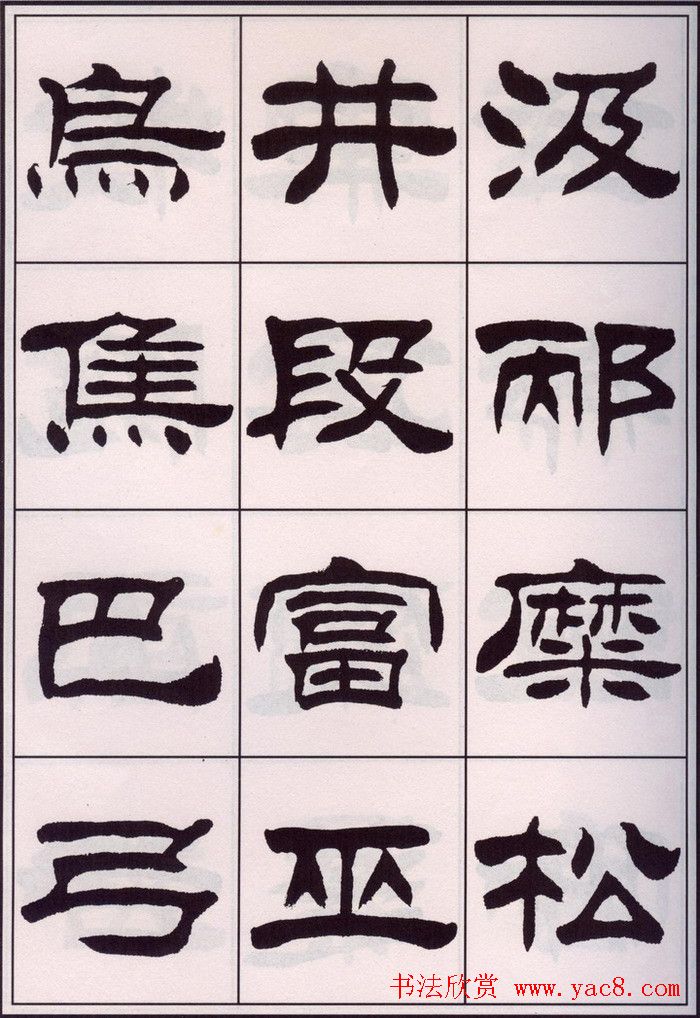 汲邴糜松
井段富巫
烏焦巴弓
书法欣赏 www.yac8.com